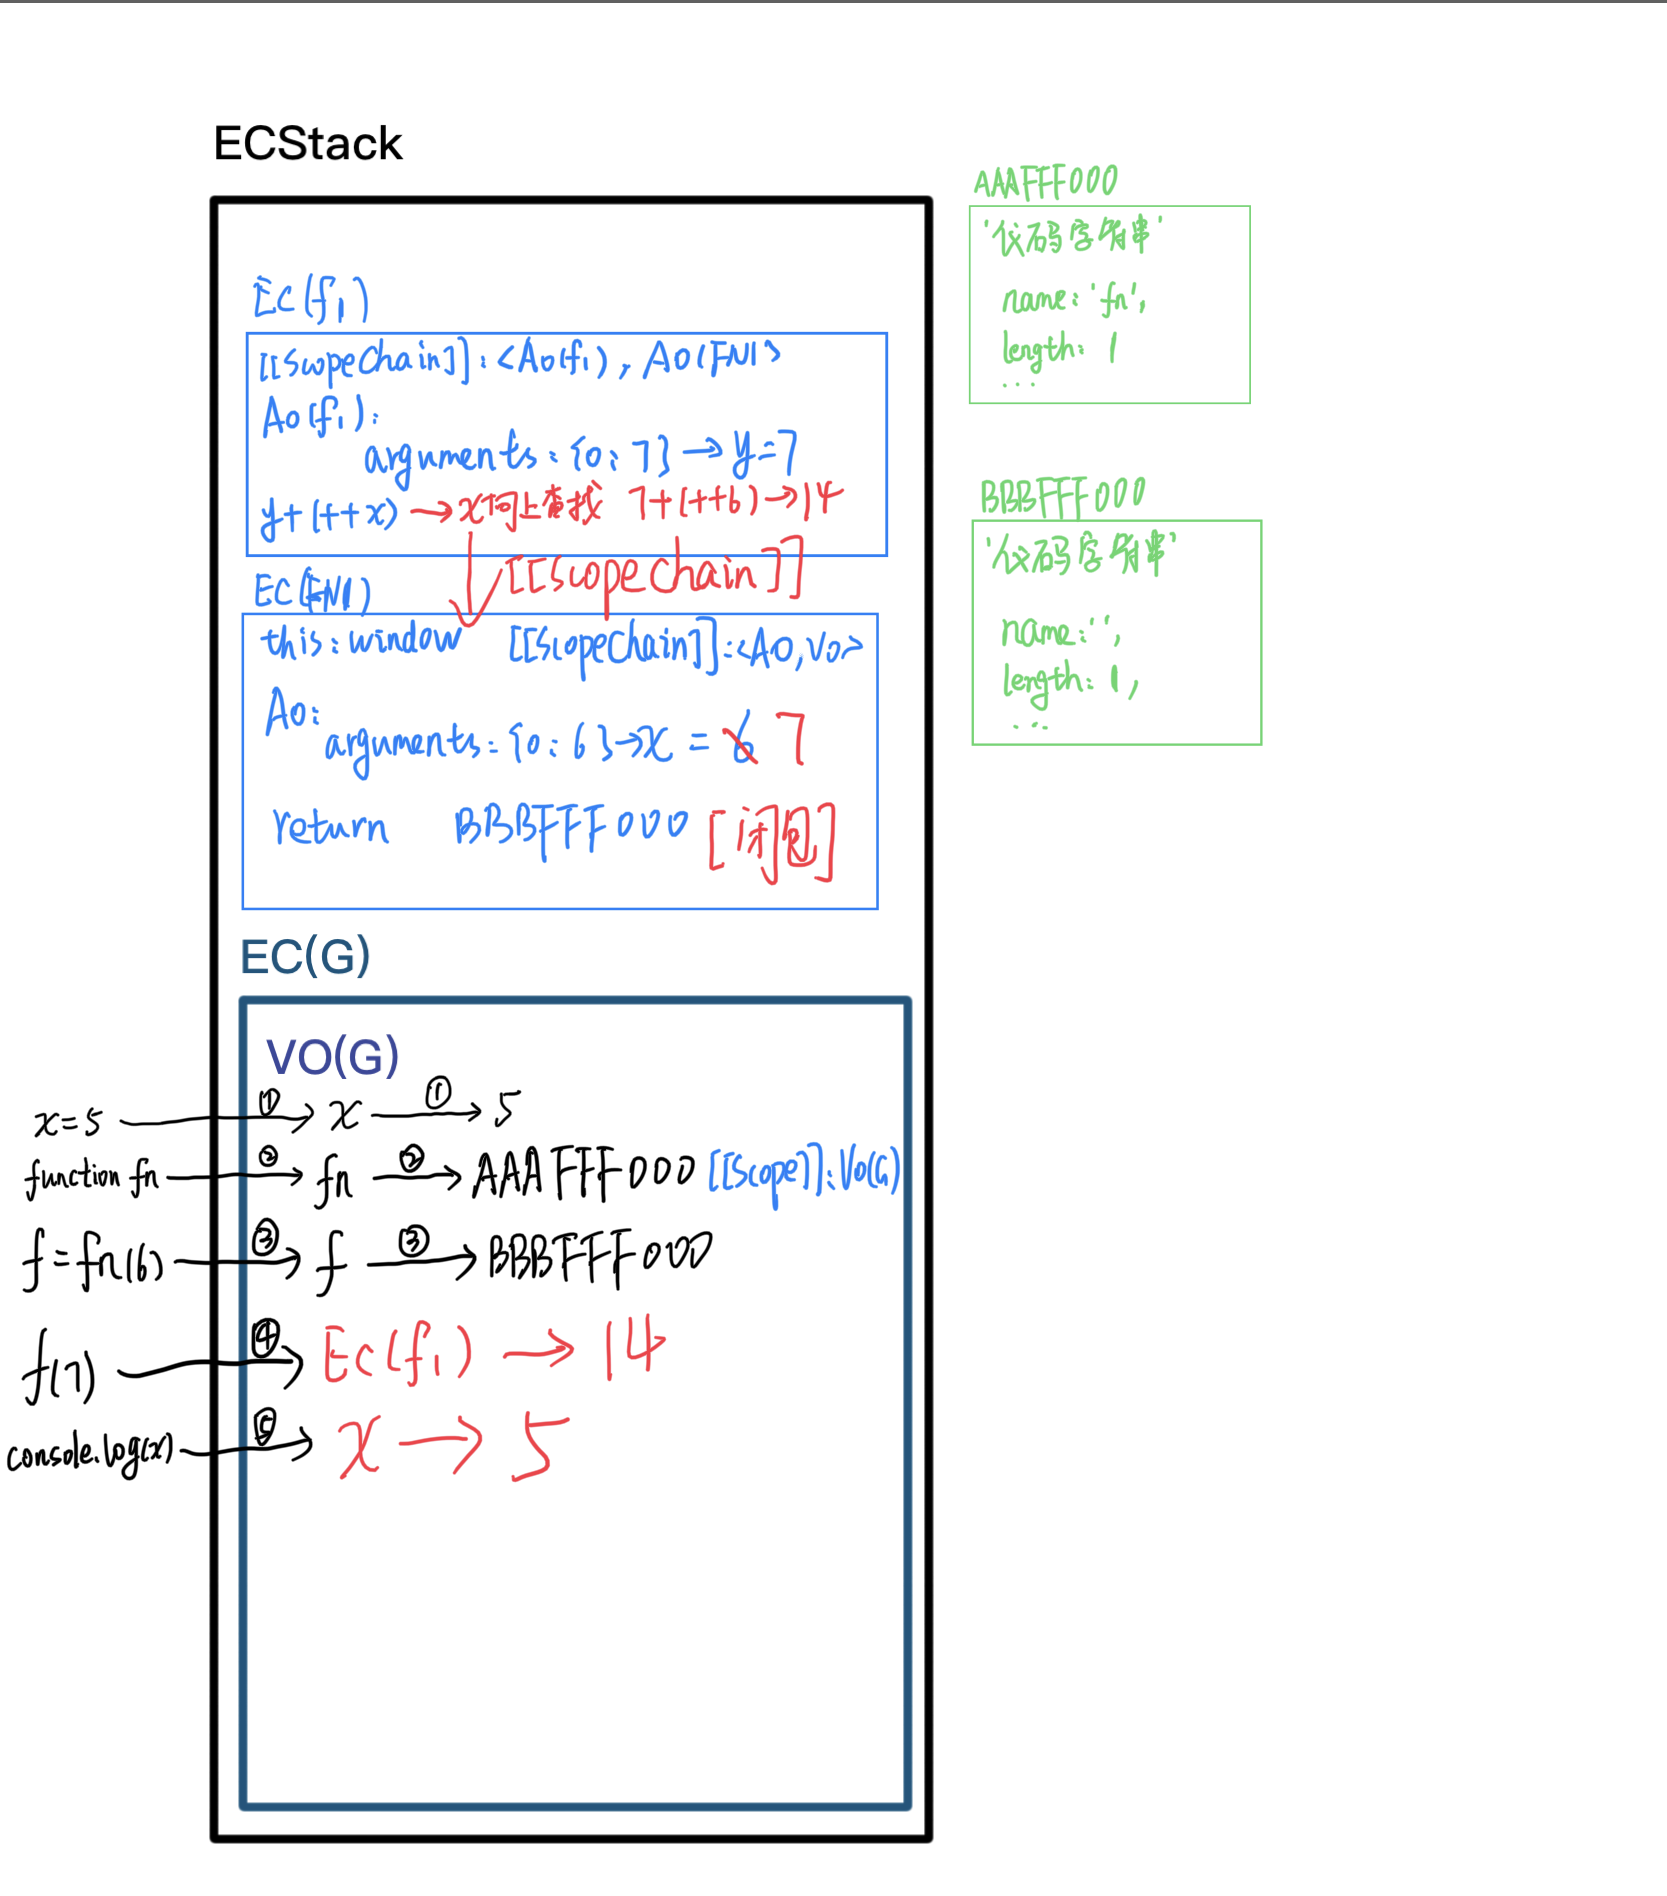 ECStack
EC(f1)
[[scopeChain]]:<AO(f1), AO(FN1>
AO(f1):
arguments:{0:7}→y=7
y+(++x)→x向上查找 7+(++6)→14
[[scopeChain]]
EC(FN1)
this:window [[scopeChain]]:<AO,VO>
AO:
arguments:{0:6}→x=6 7
return BBBFFF000 [闭包]
EC(G)
VO(G)
x=5 ① x ① 5
function fn ② fn ② AAAFFF000 [[scope]]:VO(G)
f=fn(6) ③ f ③ BBBFFF000
f(7) ④ EC(f1) → 14
console.log(x) ⑤ x → 5
AAAFFF000
'代码字符串'
name:'fn',
length:1
...
BBBFFF000
'代码字符串'
name:'',
length:1,
...